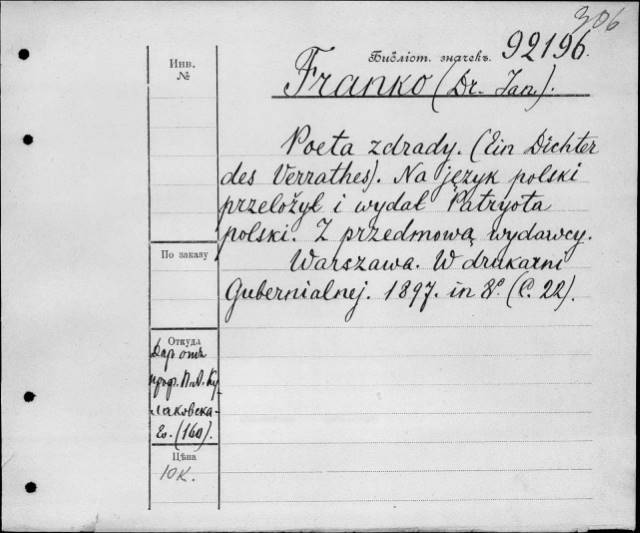 306
Библіот. значекъ. 92196.
Инв.
№
Franko (Dr. Jan).
Poeta zdrady. (Ein Dichter
des Verrathes). Na język polski
przełożył i wydał Patryota
polski. Z przedmową wydawcy.
Warszawa. W drukarni
Gubernialnej. 1897. in 8º. (C. 22).
По заказу
Откуда
Даръ отъ
проф. П. А. Ку
лаковска-
го. (160).
Цѣна
10 к.